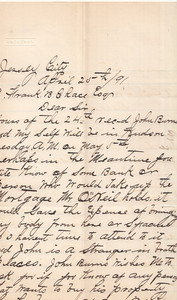 Jersey City
April 25th /91
Frank B. Chace Esqr
Dear Sir
yours of the 24th recd John Burns
and My Self Will be in Hudson
Tuesday A.M. on May 5th
perhaps in the Meantime you
know of Some Bank or
person Who Would take up the
Mortgage Mr O'Neil holds. it
Would Save the Expense of
any body from here or
I havent time to attend to it
John is a Stranger in both
places. John Burns wishes Me to
ask you if you know of any person
that wants to buy his property